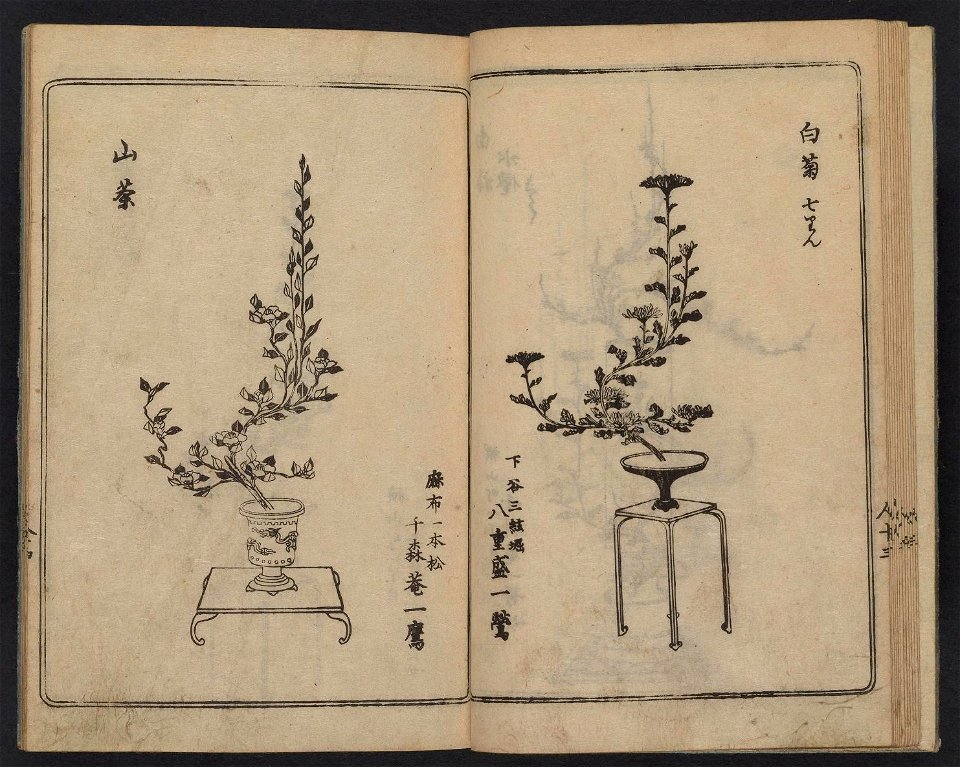 白菊 七りん
下谷三絃堀
八重盛一鶯
山茶
麻布一本松
千森菴一鷹